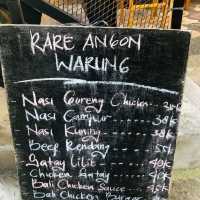 RARE ANGON
WARUNG
Nasi Goreng Chicken
Nasi Campur 38K
Nasi Kuning 38K
Beep Rendang 55K
Satay Lilit 40K
Chicken Satay 40K
Bali Chicken Sauce 45K
Bali Chicken Burger